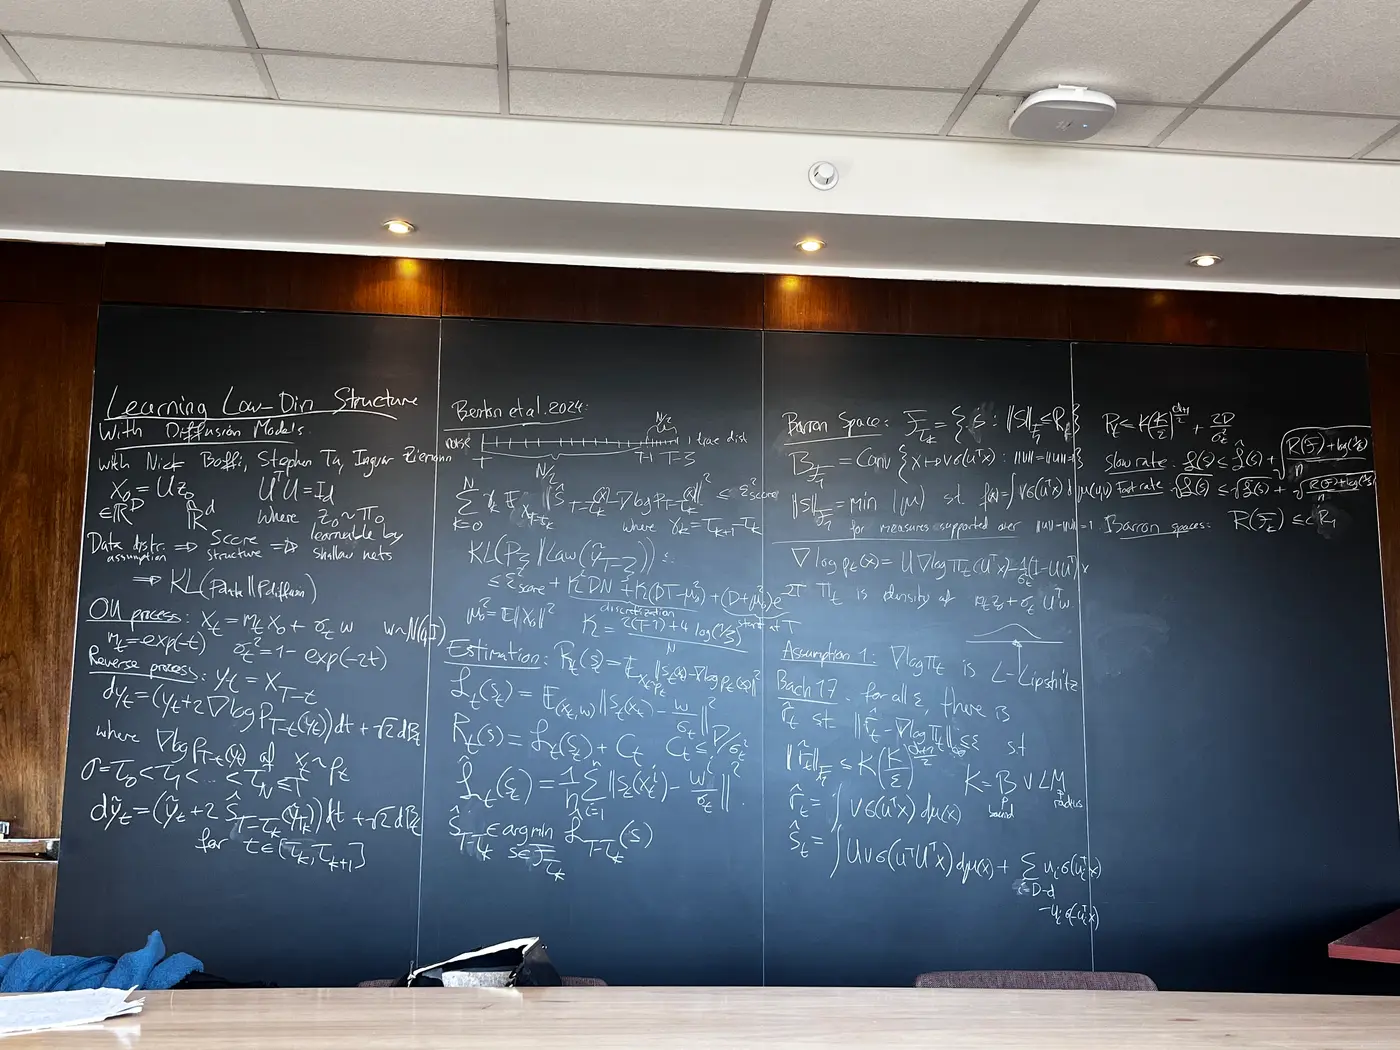 Learning Low-Dim Structure
With Diffusion Models.
with Nick Boffi, Stephen Tu, Ingvar Ziemann
X₀ = U z₀   UᵀU = I_d
∈ℝᴰ   ℝᵈ   where z₀ ~ π₀
Data distr. assumption ⇒ Score structure ⇒ learnable by shallow nets
⇒ KL(Pdata ‖ Pdiffusion)
OU process: X_t = m_t X₀ + σ_t w   w ~ N(0, I)
m_t = exp(-t)   σ_t² = 1 - exp(-2t)
Reverse process: y_t = X_{T-t}
dy_t = (y_t + 2∇log p_{T-t}(y_t))dt + √2 dB_t
where ∇log p_{T-t}(y_t) of x_t ~ p_t
0 = τ₀ < τ₁ < … < τ_N ≤ T
dỹ_t = (ỹ_t + 2 ŝ_{T-τ_k}(ỹ_{τ_k}))dt + √2 dB_t
for t ∈ [τ_k, τ_{k+1}]
Benton et al. 2024:
N/2
noise   true dist
T-1   T-ξ
N/2
∑_{k=0}^N γ_k 𝔼_{X_{T-τ_k}} ‖ŝ_{T-τ_k} - ∇log p_{T-τ_k}‖² ≤ ε²_score
where γ_k = τ_{k+1} - τ_k
KL(P_ξ ‖ Law(ỹ_{T-ξ})) ≤
≤ ε²_score + K² DN + K(DT - μ₀²) + (D + μ₀²)e^{-2T}
discretization
start at T
μ₀² = 𝔼‖X₀‖²
K = 2(T-1) + 4 log(1/ξ) / N
Estimation: R_t(s) = 𝔼_{x_t~p_t} ‖s_t(x) - ∇log p_t(x)‖²
ℒ_t(s_t) = 𝔼_{(x_t, w)} ‖s_t(x_t) - w/σ_t‖²
R_t(s) = ℒ_t(s_t) + C_t   C_t ≤ D/σ_t²
ℒ̂_t(s_t) = 1/n ∑_{i=1}^n ‖s_t(x_tⁱ) - wⁱ/σ_t‖².
ŝ_{T-τ_k} ∈ argmin_{s∈ℱ_{τ_k}} ℒ̂_{T-τ_k}(s)
Barron Space: ℱ_{τ_k} = {s : ‖s‖_{ℱ₁} ≤ R_k}
B_{ℱ₁} = Conv {x ↦ vσ(uᵀx) : ‖u‖=‖v‖=1}
‖s‖_{ℱ₁} = min |μ| st. f(x) = ∫ vσ(uᵀx) dμ(u,v)
for measures supported over ‖u‖=‖v‖=1.
∇log p_t(x) = U∇log π_t(Uᵀx) - 1/σ_t² (I - UUᵀ)x
π_t is density of m_t z₀ + σ_t Uᵀw
Assumption 1: ∇log π_t is L-Lipschitz
Bach 17. for all ε, there is
r̂_t st ‖r̂_t - ∇log π_t‖ ≤ ε   st
‖r̂_t‖_{ℱ₁} ≤ K(K/ε)^{(d+1)/2}   K = B ∨ LM
radius
r̂_t = ∫ vσ(uᵀx) dμ(x)
ŝ_t = ∫ Uvσ(uᵀUᵀx) dμ(x) + ∑_{i=D-d} u_i σ(u_iᵀx)
-u_i σ(-u_iᵀx)
R_t ≤ K(K/ε)^{(d+1)/2} + 2D/σ_t²
Slow rate: ℒ(s) ≤ ℒ̂(s) + √(R(ℱ)+log(1/δ) / n)
Fast rate: √ℒ(s) ≤ √ℒ̂(s) + √(R(ℱ)+log(1/δ) / n)
Barron spaces: R(ℱ_t) ≤ c R₁